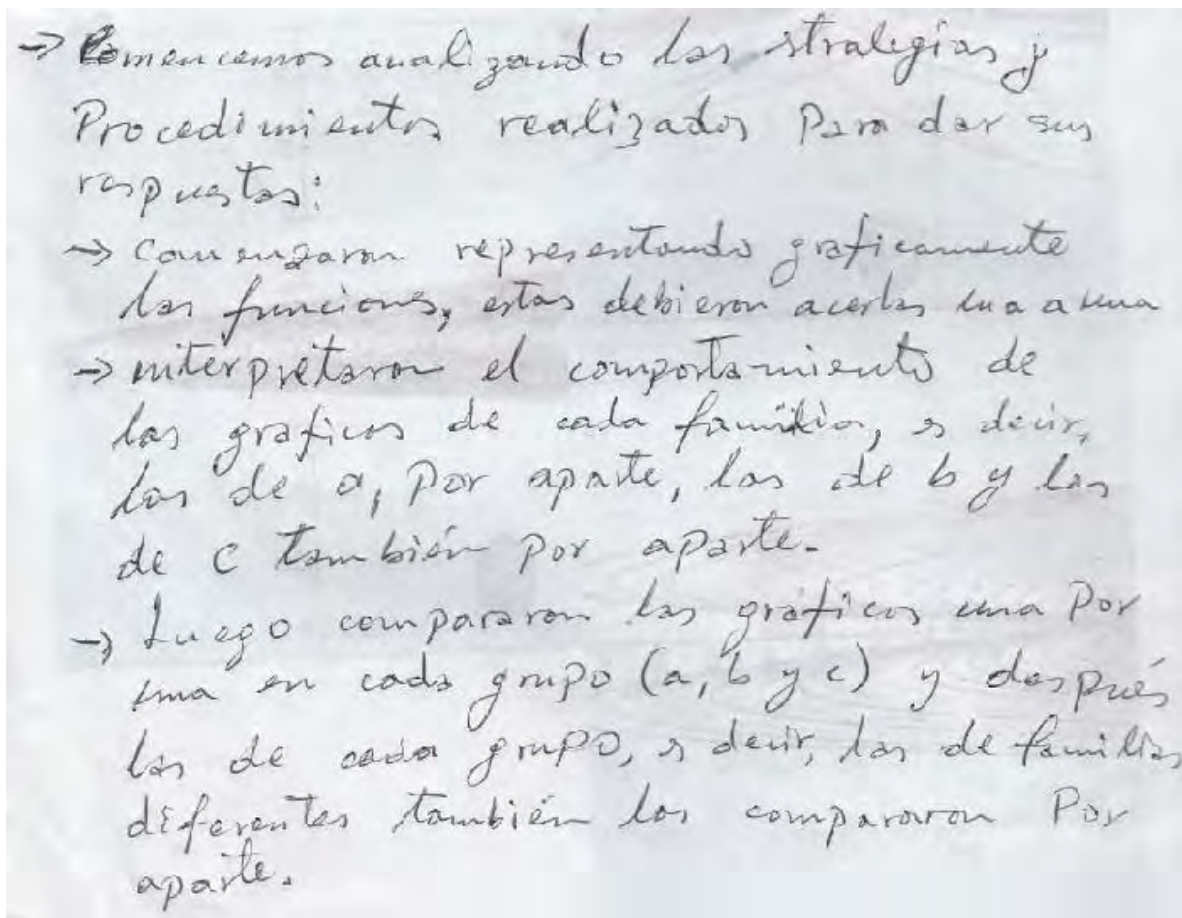 → Comencemos analizando las strategias y
Procedimientos realizados Para dar sus
respuestas:
→ Comenzaron representando graficamente
las funciones, estas debieron acerlas una a una
→ interpretaron el comportamiento de
las graficas de cada familia, es decir,
las de a, Por aparte, las de b y las
de c también por aparte.
→ Luego compararon las gráficas una Por
una en cada grupo (a, b y c) y después
las de cada grupo, es decir, las de familias
diferentes también las compararon Por
aparte.